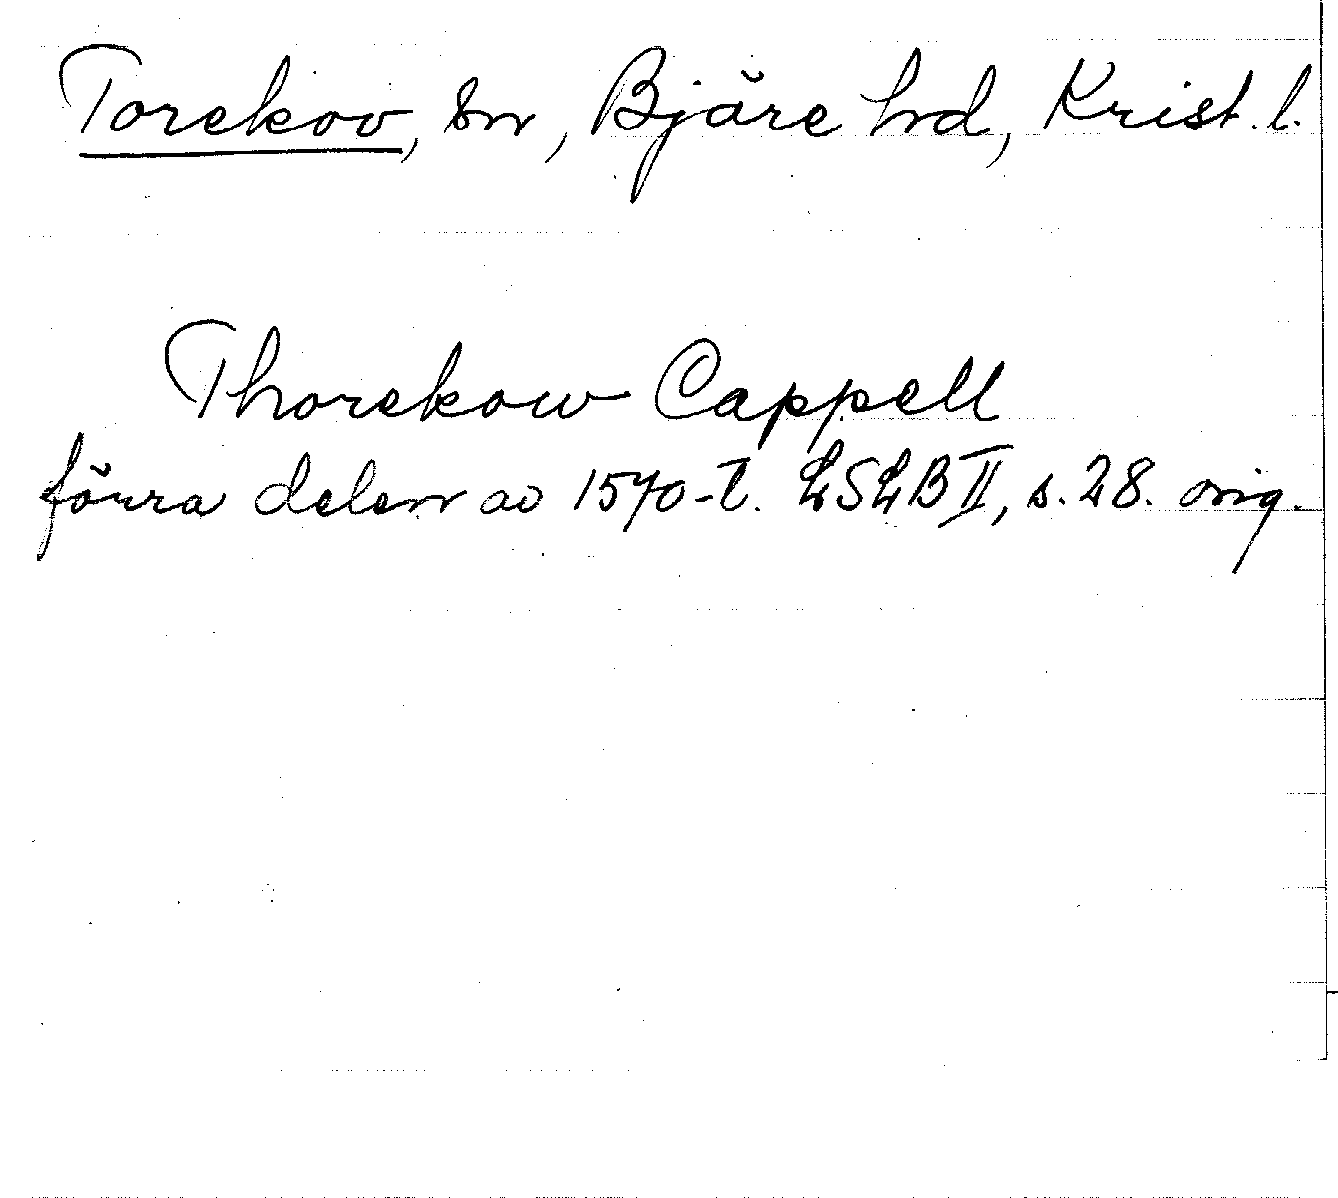 Torekov, sn, Bjäre hd, Krist. l.
Thorekow Cappell
förra delen av 1570-t. LSLB II, s. 28. orig.